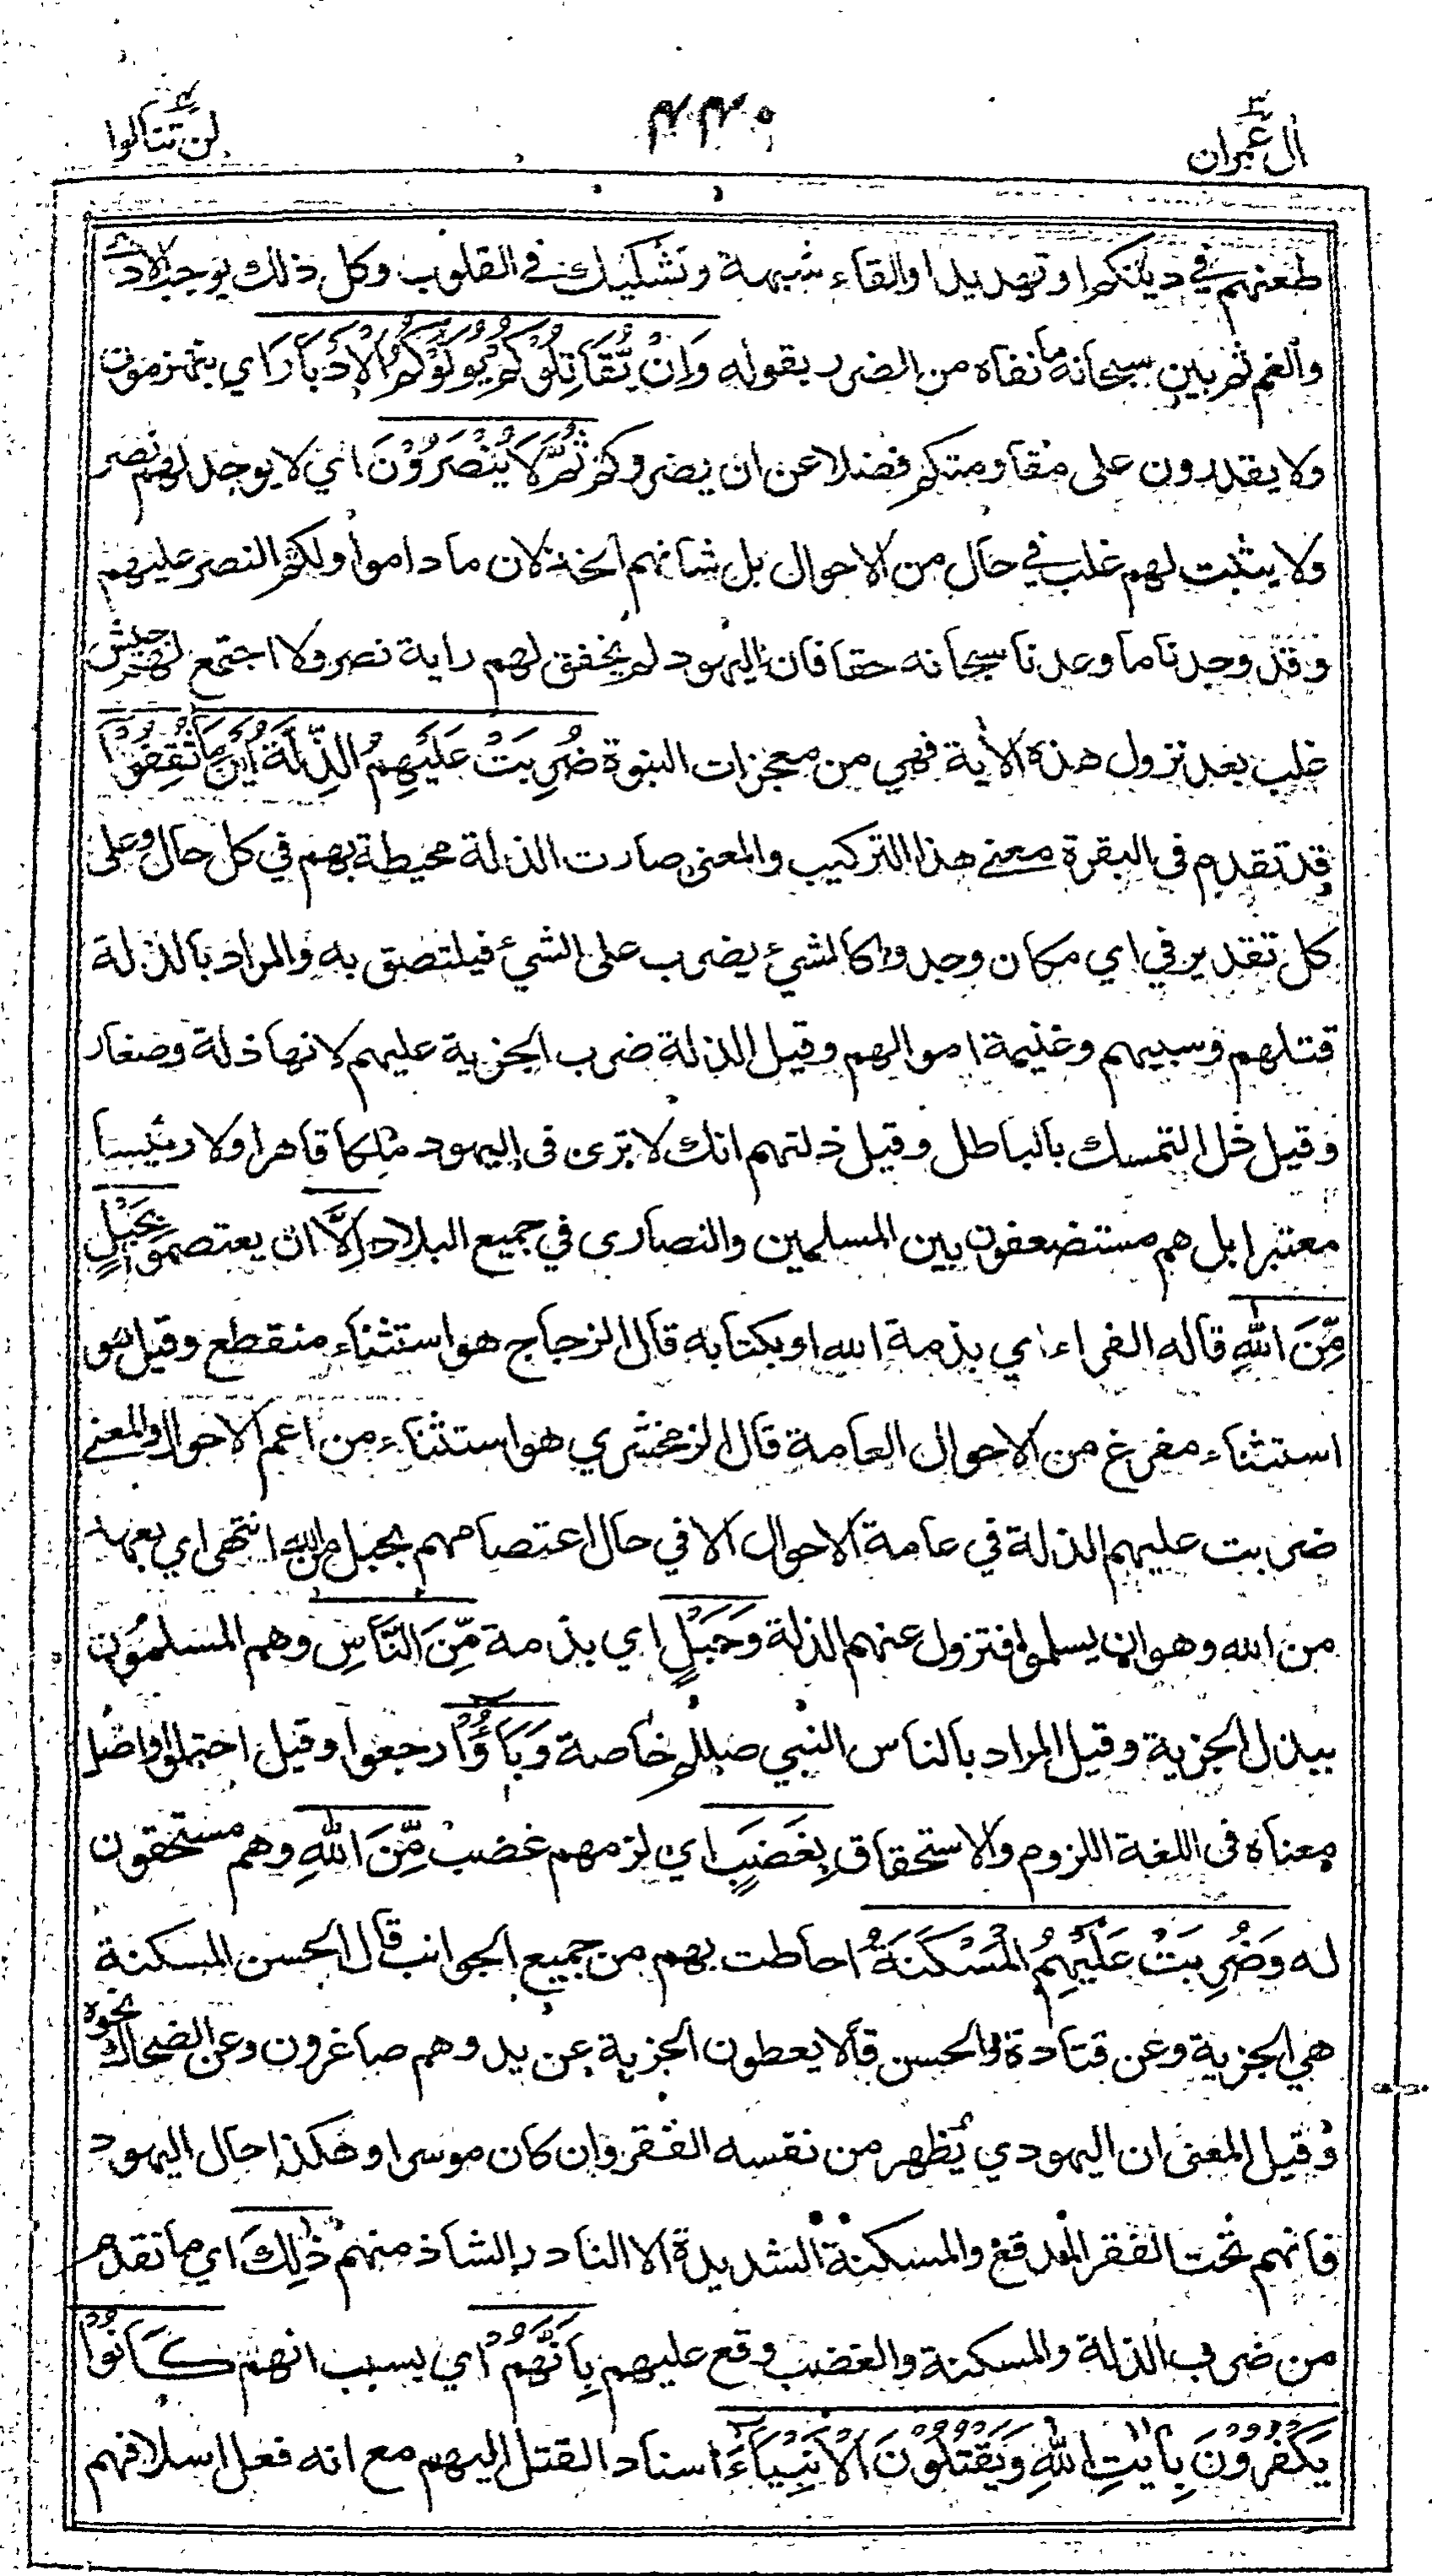 ال عمران
لن تنالوا
طعنهم في دينكم او تهديدا والقاء شبهة وتشكيك في القلوب وكل ذلك يوجب الاذى
والغم ثم بين سبحانه ما نفاه من الضرر بقوله وَاِنْ يُّقَاتِلُوْكُمْ يُوَلُّوْكُمُ الْاَدْبَارَ اي ينهزمون
ولا يقدرون على مقاومتكم فضلا عن ان يضروكم ثُمَّ لَا يُنْصَرُوْنَ اي لا يوجد لهم نصر
ولا يثبت لهم غلب في حال من الاحوال بل شانهم الخذلان ما داموا ولكم النصر عليهم
وقد وجدنا ما وعدنا سبحانه حقا فان اليهود لم يخفق لهم راية نصر ولا اجتمع لهم جيش
غلب بعد نزول هذه الاية فهي من معجزات النبوة ضُرِبَتْ عَلَيْهِمُ الذِّلَّةُ اَيْنَ مَا ثُقِفُوْا
قد تقدم في البقرة معنے هذا التركيب والمعنى صارت الذلة محيطة بهم في كل حال وعلى
كل تقدير في اي مكان وجدوا كالشئ يضرب على الشئ فيلتصق به والمراد بالذلة
قتلهم وسبيهم وغنيمة اموالهم وقيل الذلة ضرب الجزية عليهم لانها ذلة وصغار
وقيل ذل التمسك بالباطل وقيل ذلتهم انك لا ترى في اليهود ملكا قاهرا ولا رئيسا
معتبرا بل هم مستضعفون بين المسلمين والنصارى في جميع البلاد اِلَّا ان يعتصموا بِحَبْلٍ
مِّنَ اللهِ قاله الفراء اي بذمة الله او بكتابه قال الزجاج هو استثناء منقطع وقيل هو
استثناء مفرغ من الاحوال العامة قال الزمخشري هو استثناء من اعم الاحوال والمعنے
ضربت عليهم الذلة في عامة الاحوال الا في حال اعتصامهم بحبل من الله انتهى اي بعهد
من الله وهو ان يسلموا فتزول عنهم الذلة وَحَبْلٍ اي بذمة مِّنَ النَّاسِ وهم المسلمون
ببذل الجزية وقيل المراد بالناس النبي صللم خاصة وَبَآؤُا رجعوا وقيل احتملوا واصل
معناه في اللغة اللزوم والاستحقاق بِغَضَبٍ اي لزمهم غضب مِّنَ اللهِ وهم مستحقون
له وَضُرِبَتْ عَلَيْهِمُ الْمَسْكَنَةُ احاطت بهم من جميع الجوانب قال الحسن المسكنة
هي الجزية وعن قتادة والحسن قالا يعطون الجزية عن يد وهم صاغرون وعن الضحاك نحوه
وقيل المعنى ان اليهودي يُظهر من نفسه الفقر وان كان موسرا وهكذا حال اليهود
فانهم تحت الفقر المدقع والمسكنة الشديدة الا النادر الشاذ منهم ذٰلِكَ اي ما تقدم
من ضرب الذلة والمسكنة والغضب وقع عليهم بِاَنَّهُمْ اي بسبب انهم كَانُوْا
يَكْفُرُوْنَ بِاٰيٰتِ اللهِ وَيَقْتُلُوْنَ الْاَنْبِيَآءَ اسناد القتل اليهم مع انه فعل اسلافهم